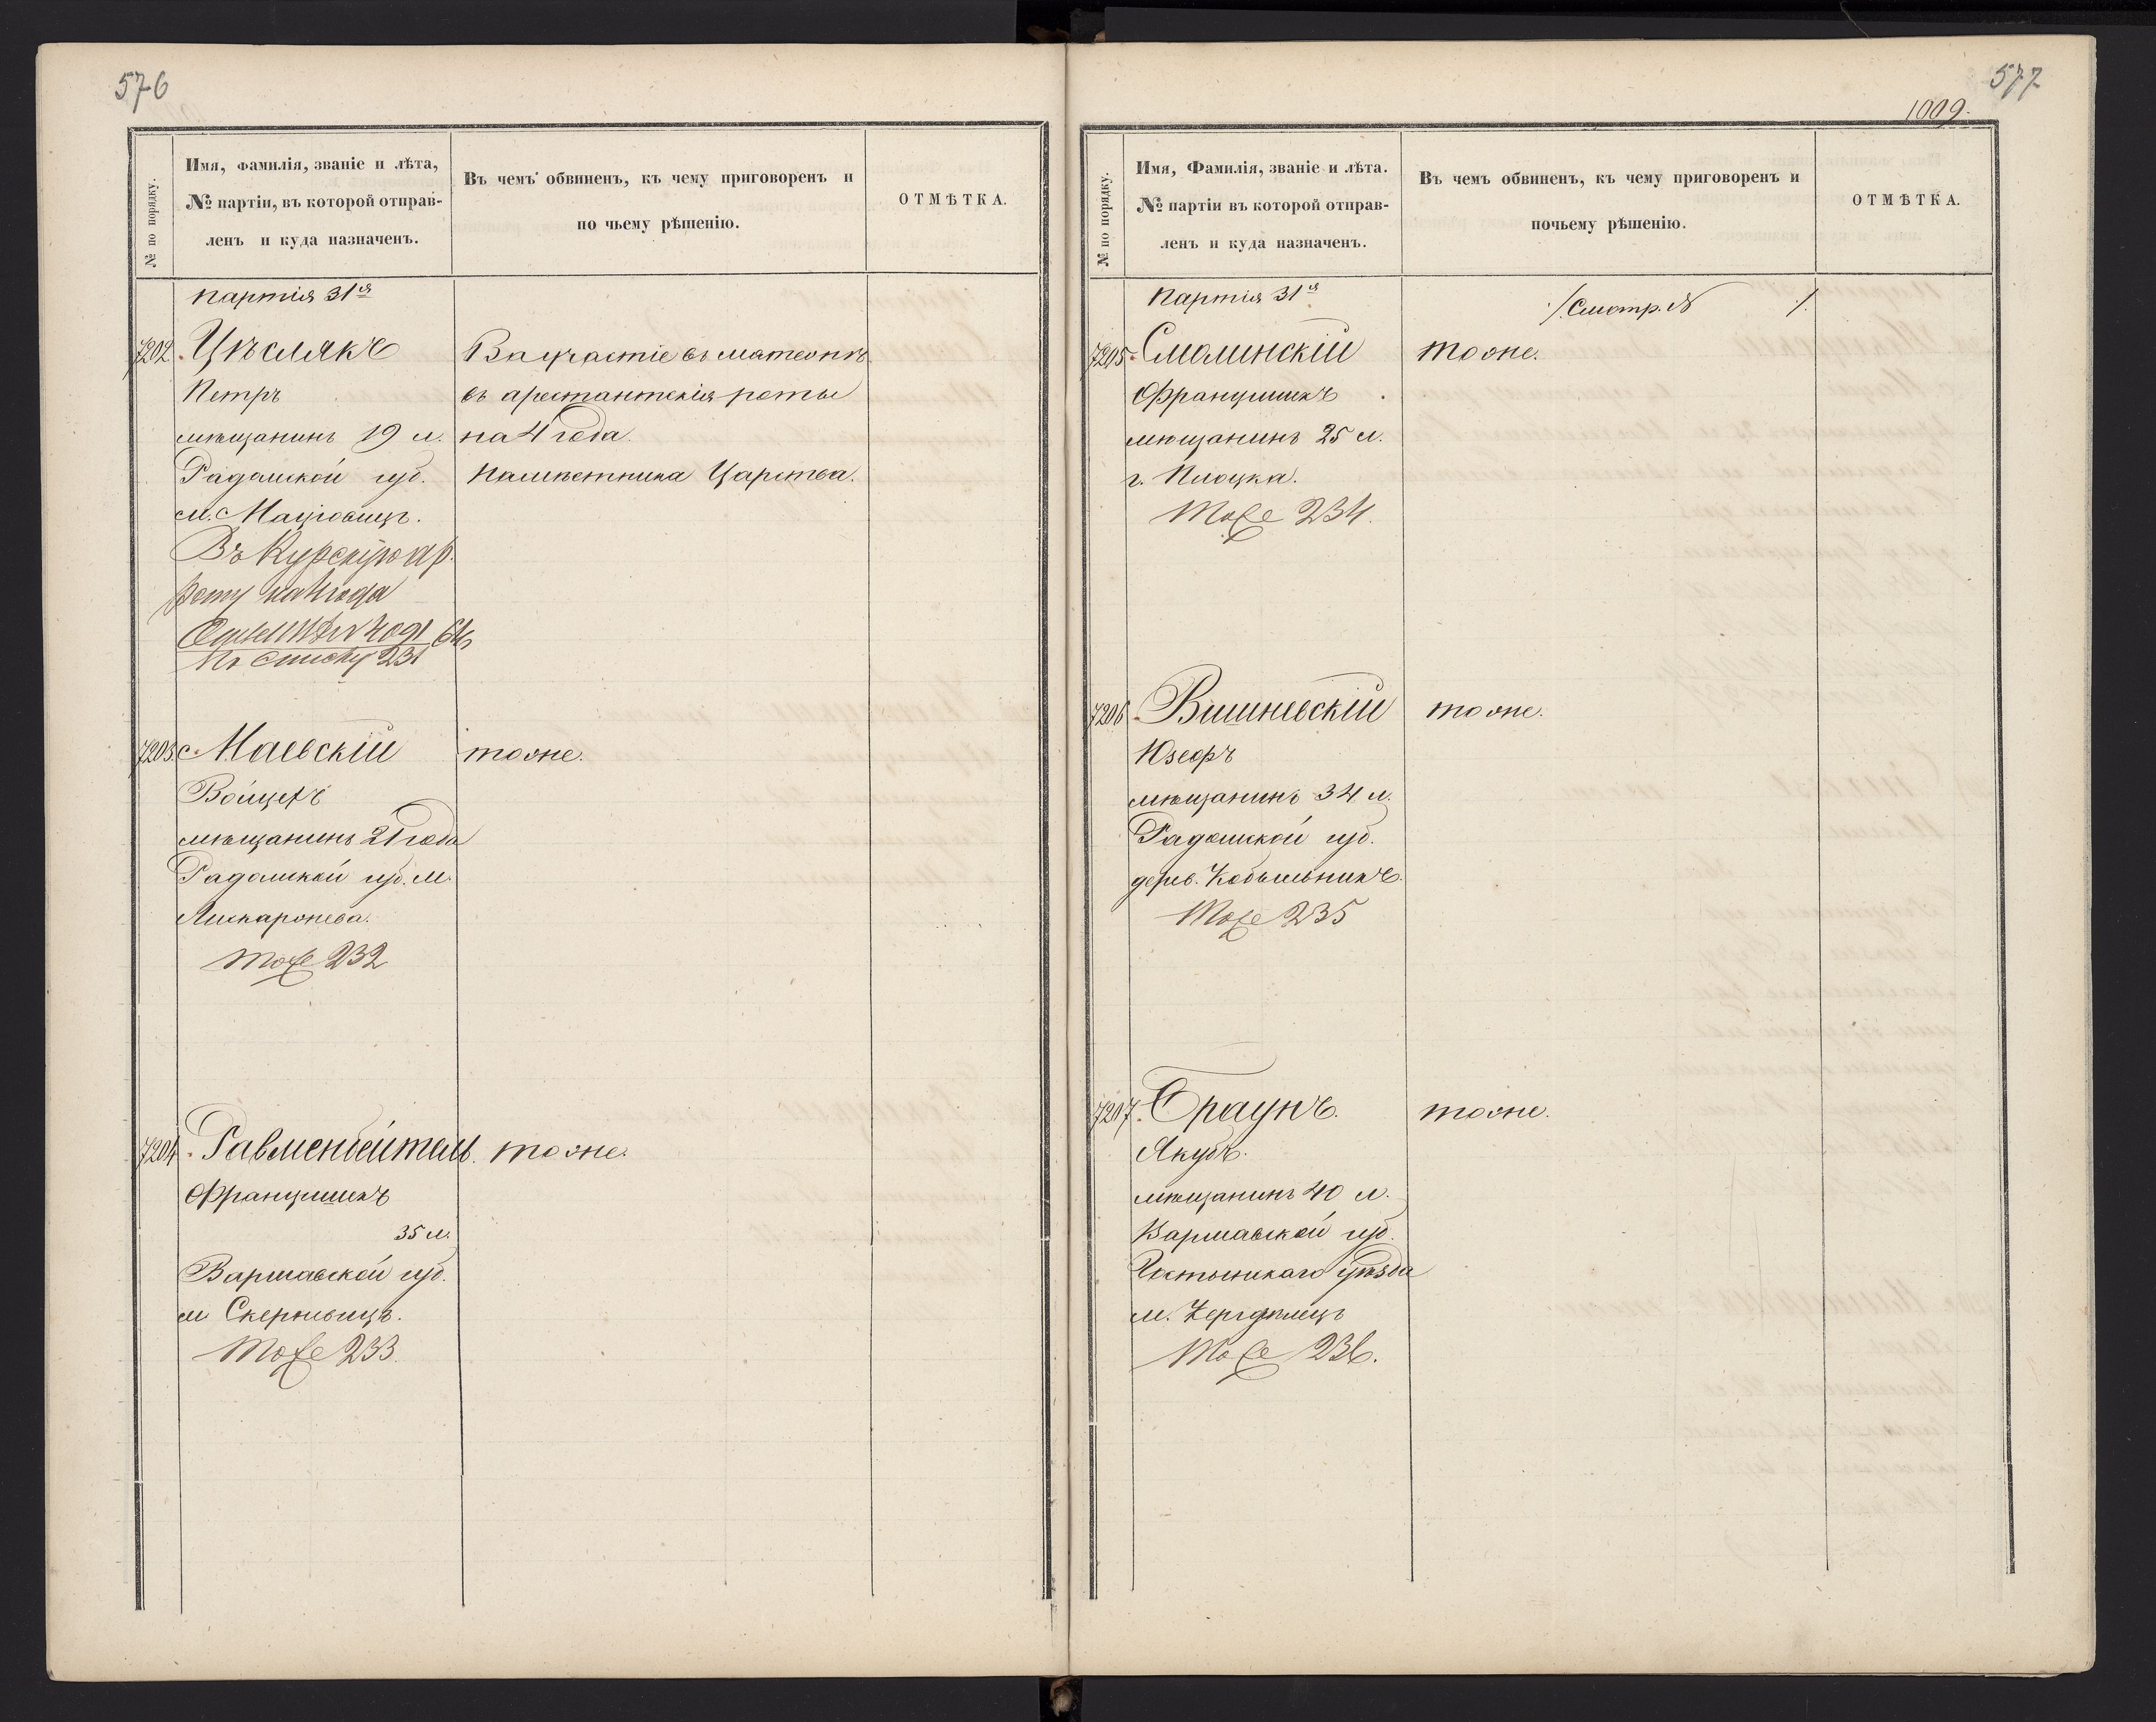 576
№ по порядку.
Имя, фамилія, званіе и лѣта,
№ партіи, въ которой отправ-
ленъ и куда назначенъ.
Въ чемъ обвиненъ, къ чему приговоренъ и
по чьему рѣшенію.
ОТМѢТКА.
партія 31я
7202. Цѣслякъ
Петръ
мѣщанинъ 19 л.
Радомской губ.
м. Мацѣовицъ.
Въ Курскую ар.
роту на 4 года
4091 64
По списку 231
За участіе въ мятежѣ
въ арестантскія роты
на 4 года.
Намѣстника Царства.
7203. Маевскій
Войцехъ
мѣщанинъ 21 года
Радомской губ. м.
тоже.
Тоже 232
7204. Равменбейтель.
Францишекъ
35 л.
Варшавской губ.
м. Скерневицъ.
Тоже 233.
тоже.
577
1009.
№ по порядку.
Имя, Фамилія, званіе и лѣта.
№ партіи въ которой отправ-
ленъ и куда назначенъ.
Въ чемъ обвиненъ, къ чему приговоренъ и
почьему рѣшенію.
ОТМѢТКА.
Партія 31я
./. Смотр. № ./.
7205. Смолинскій
Францишекъ
мѣщанинъ 25 л.
г. Плоцка.
Тоже 234.
тоже.
7206. Вишневскій
Юзефъ
мѣщанинъ 34 л.
Радомской губ.
дерев. Кобыльникъ.
Тоже 235
тоже.
7207. Браунъ.
Якубъ.
мѣщанинъ 40 л.
Варшавской губ.
Гостынскаго уѣзда
м.
Тоже 236.
тоже.